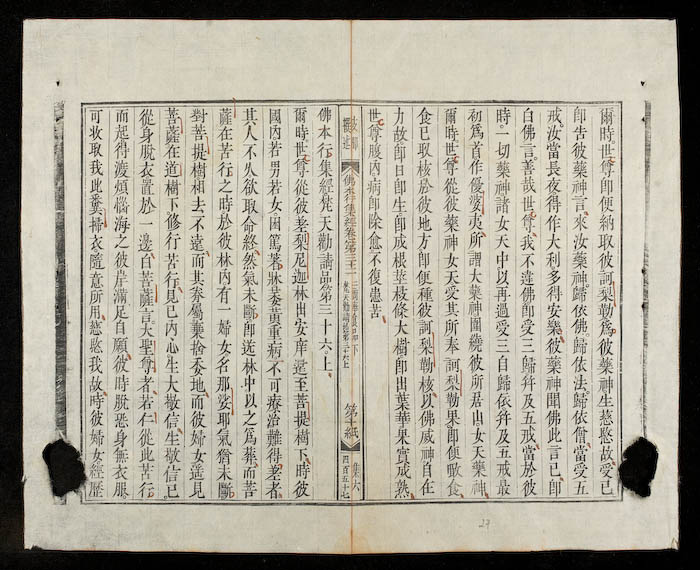 爾時世尊即便納取彼訶梨勒爲彼藥神生慈愍故受已
即告彼藥神言來汝藥神歸依佛歸依法歸依僧當受五
戒汝當長夜得作大利多得安樂彼藥神聞佛此言已即
白佛言善哉世尊我不違佛即受三歸幷及五戒當於彼
時一切藥神諸女天中以再過受三自歸依幷及五戒最
初爲首作優婆夷所謂大藥神圍繞彼所居山女天藥神
爾時世尊從彼藥神女天受其所奉訶梨勒果即便噉食
食已取核於彼地方即便種彼訶梨勒核以佛威神自在
力故即日即生即成根莖枝條大樹即出葉華果實成熟
世尊腹內病即除愈不復患苦
支那撰述
佛本行集經卷第三十二
二商奉食品下
梵天勸請品第三十六上
第十紙
集六
四百五十七
佛本行集經梵天勸請品第三十六上
爾時世尊從彼差梨尼迦林出安庠還至菩提樹下時彼
國內若男若女困篤著牀萎黃重病不可療治難得差者
其人不久欲取命終然氣未斷即送林中以之爲葬而菩
薩在苦行之時於彼林內有一婦女名那娑耶氣猶未斷
對菩提樹相去不遠而其眷屬棄捨委地而彼婦女遙見
菩薩在道樹下修行苦行見已內心生大敬信生敬信已
從身脫衣置於一邊白菩薩言大聖尊者若仁從此苦行
而起得渡煩惱海之彼岸滿足自願彼時脫惡身無衣服
可收取我此糞掃衣隨意所用慈愍我故時彼婦女經歷
27